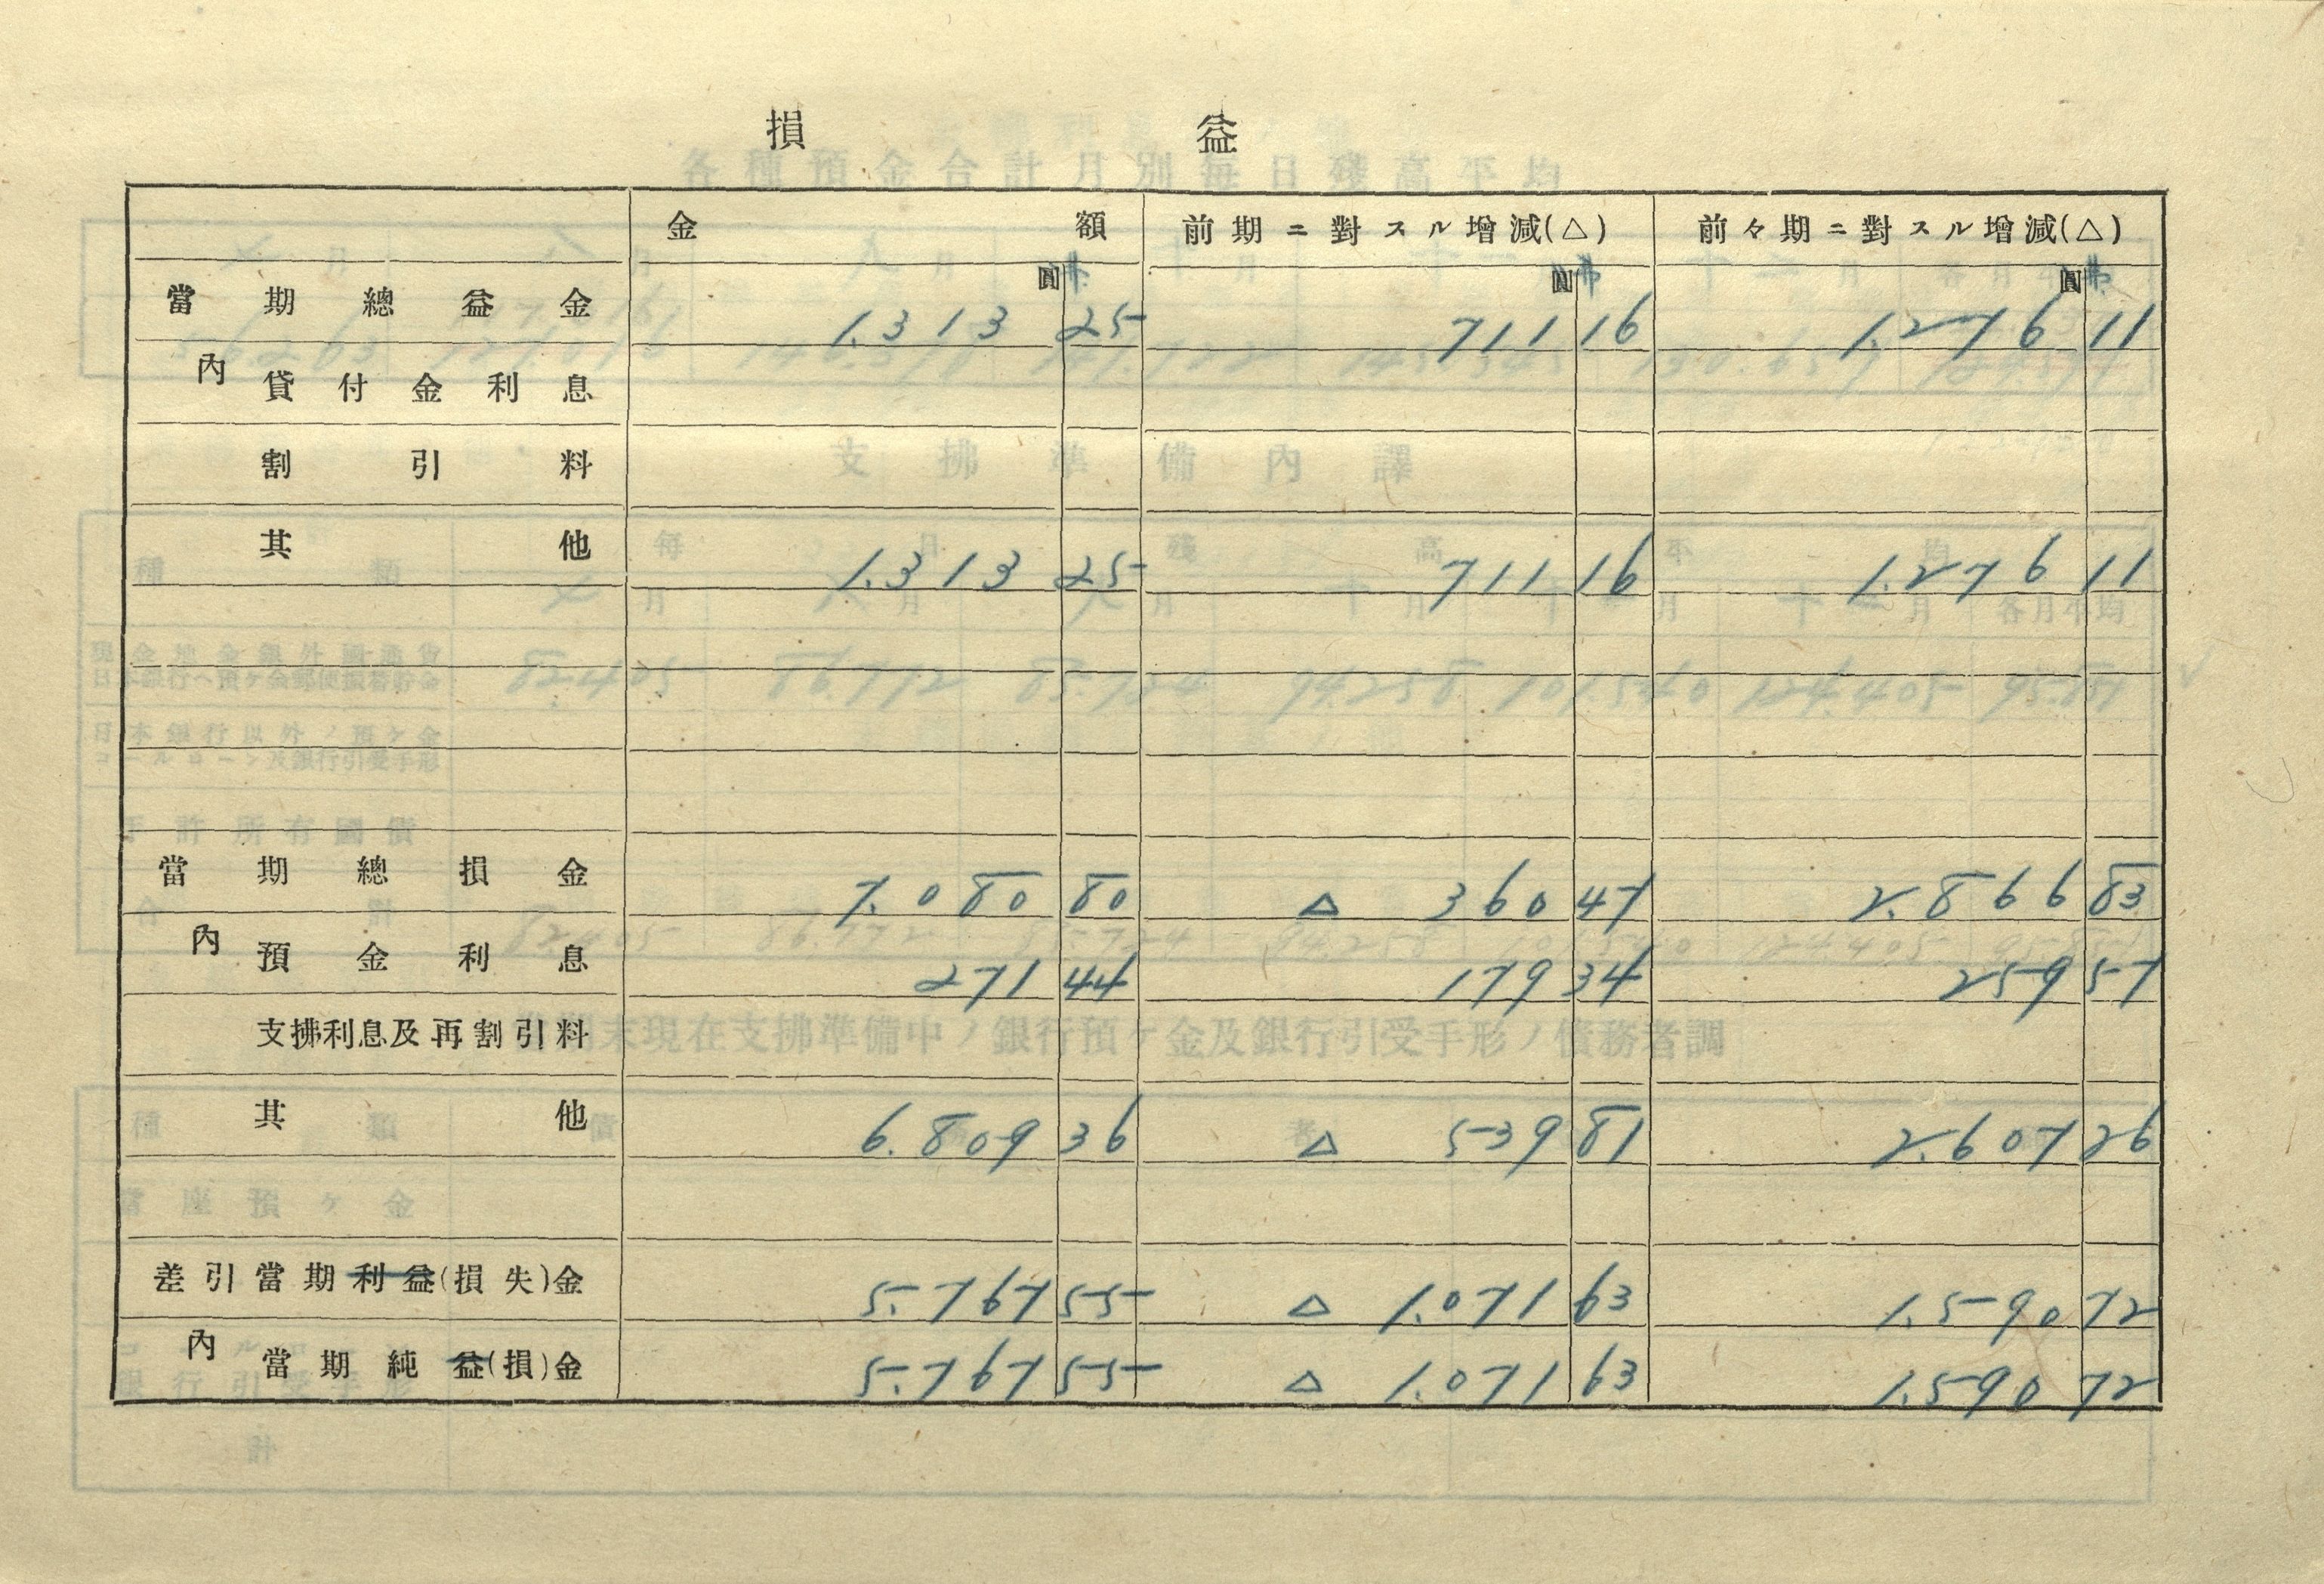 損益
金額 前期ニ對スル增減(△) 前々期ニ對スル增減(△)
圓 弗 圓 弗 圓 弗
當期總益金 1.313 25 711 16 1.276 11
內 貸付金利息
割引料
其他 1.313 25 711 16 1.276 11
當期總損金 7.080 80 △ 360 47 2.866 83
內 預金利息 271 44 179 34 259 57
支拂利息及再割引料
其他 6.809 36 △ 539 81 2.607 26
差引當期利益(損失)金 5.767 55 △ 1.071 63 1.590 72
內 當期純益(損)金 5.767 55 △ 1.071 63 1.590 72